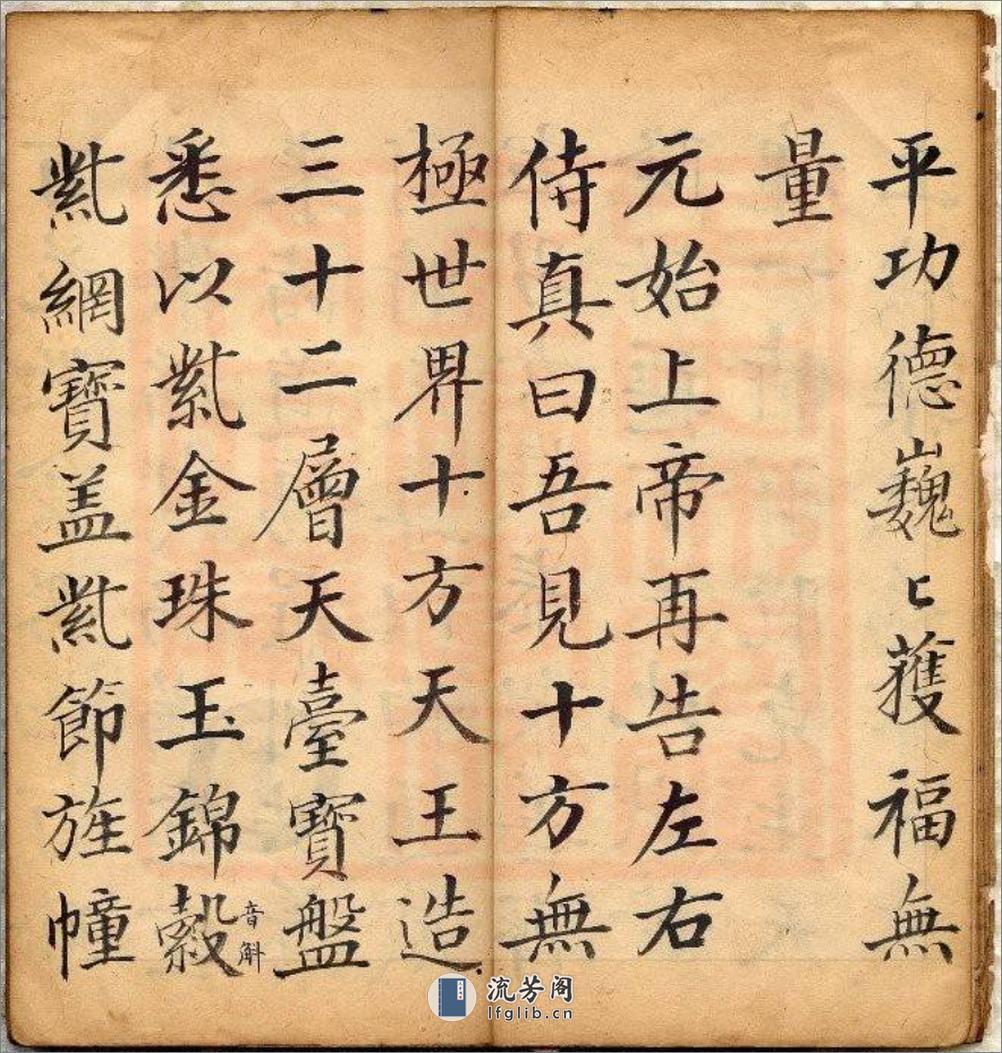 平功德巍〻獲福無
量
元始上帝再告左右
侍真曰吾見十方無
極世界十方天王造
三十二層天臺寶盤
悉以紫金珠玉錦縠音斛
紫網寶盖紫節旌幢
流芳阁
lfglib.cn